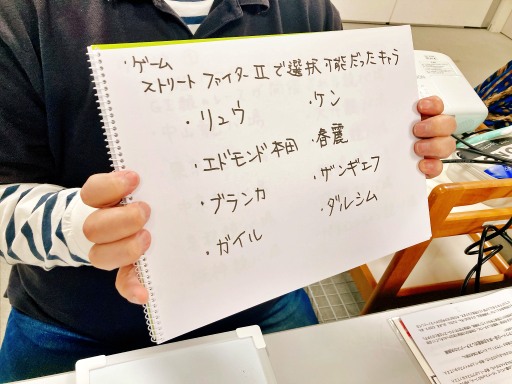 ・ゲーム
ストリートファイターⅡで選択可能だったキャラ
・リュウ ・ケン
・エドモンド本田 ・春麗
・ブランカ ・ザンギエフ
・ガイル ・ダルシム